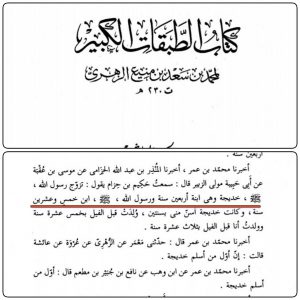 كتاب الطبقات الكبير
لمحمد بن سعد بن منيع الزهري
ت ٢٣٠ هـ
أربعين سنة .
أخبرنا محمّد بن عمر ، أخبرنا المُنْذِر بن عبد الله الحِزامى عن موسى بن عُقْبَة
عن أَبِى حَبِيبة مولى الزبير قال : سمعتُ حَكِيم بن حِزام يقول : تزوّج رسول الله ،
ﷺ ، خديجة وهى ابنة أربعين سنة ورسول الله ، ﷺ ، ابن خمس وعشرين
سنة ، وكانت خديجة أسنّ منى بسنتين ، وُلِدَتْ قبل الفيل بخمس عشرة سنة
وولدتُ أنا قبل الفيل بثلاث عشرة سنة .
أخبرنا محمّد بن عمر قال : حدّثنى مَعْمَر عن الزُّهْرىّ عن عُرْوَة عن عائشة
قالت : إنّ أوّل من أسلم خديجة .
أخبرنا محمد بن عمر عن ابن وهب عن نافع بن جُبَيْر بن مطعم قال : أوّل من
أسلم خديجة .